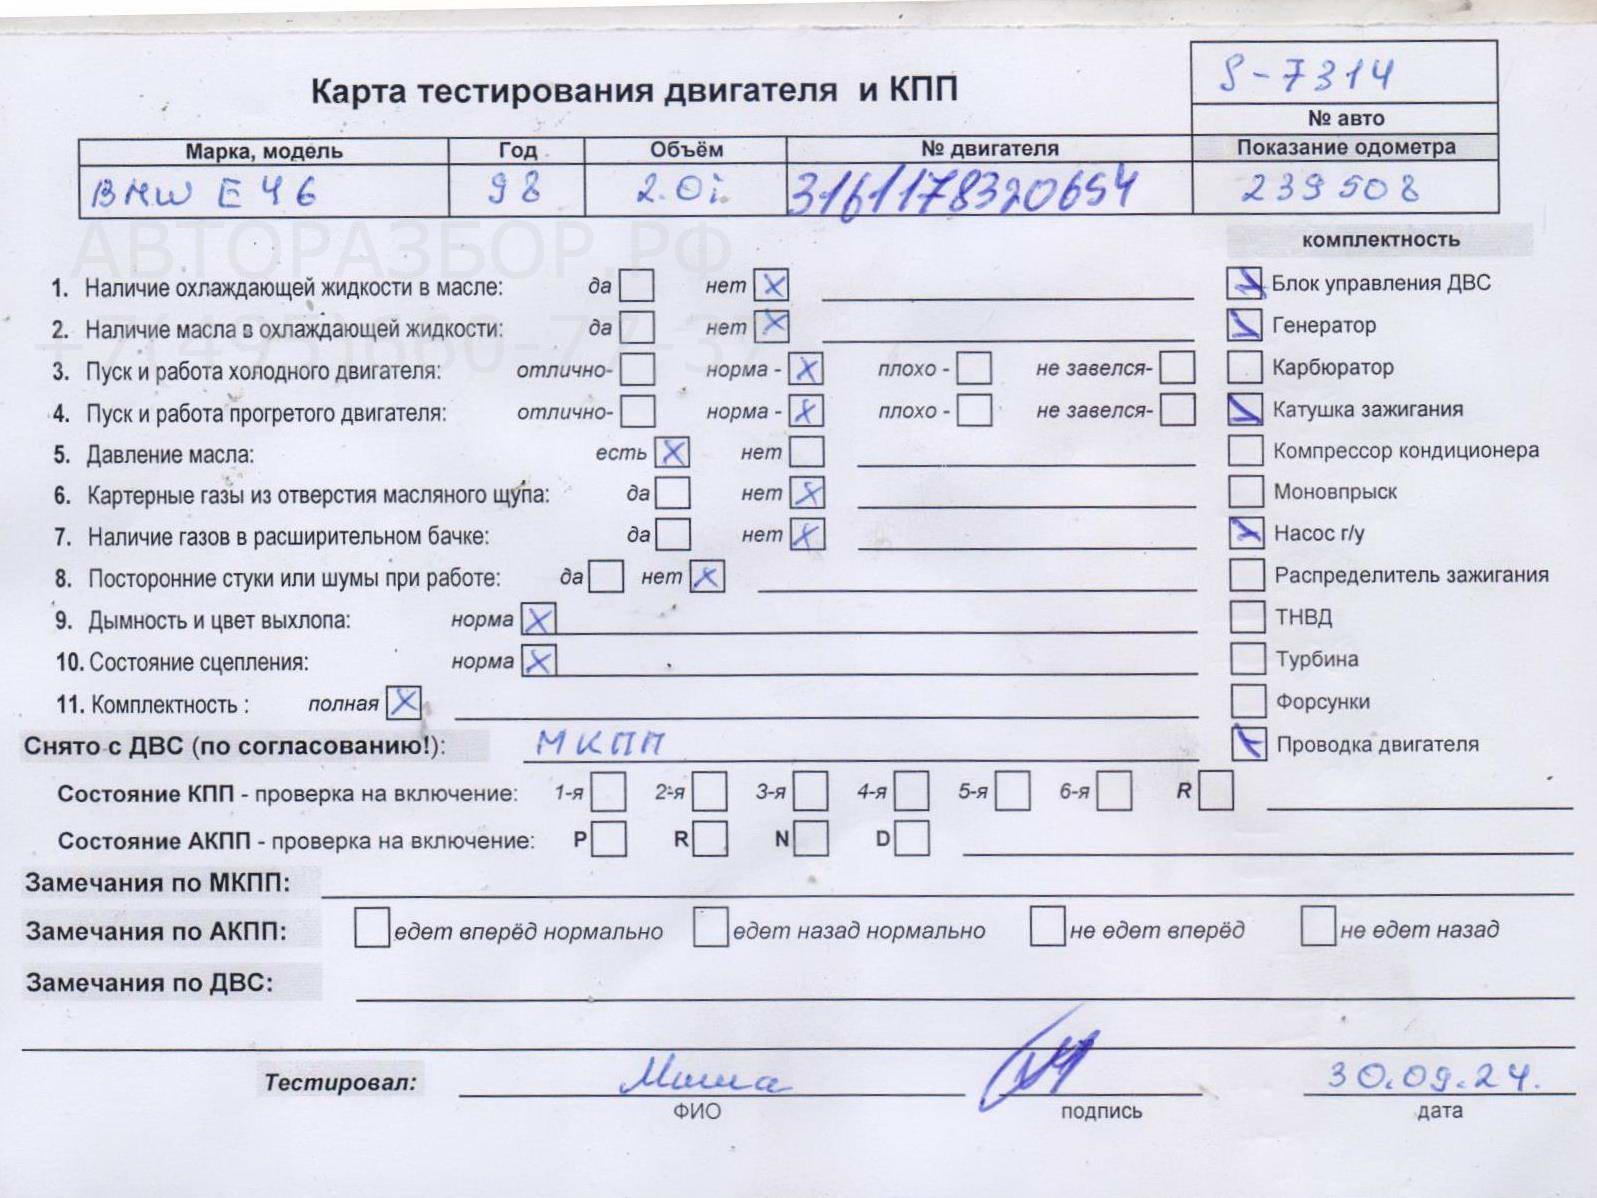 S-7314
Карта тестирования двигателя и КПП
№ авто
Марка, модель Год Объём № двигателя Показание одометра
BMW E46 98 2.0i 31611178320654 239508
АВТОРАЗБОР.РФ
комплектность
1. Наличие охлаждающей жидкости в масле: да нет Х Блок управления ДВС
+7(495)660-77-37
2. Наличие масла в охлаждающей жидкости: да нет Х Генератор
3. Пуск и работа холодного двигателя: отлично- норма - Х плохо - не завелся- Карбюратор
4. Пуск и работа прогретого двигателя: отлично- норма - Х плохо - не завелся- Катушка зажигания
5. Давление масла: есть Х нет Компрессор кондиционера
6. Картерные газы из отверстия масляного щупа: да нет Х Моновпрыск
7. Наличие газов в расширительном бачке: да нет Х Насос г/у
8. Посторонние стуки или шумы при работе: да нет Х Распределитель зажигания
9. Дымность и цвет выхлопа: норма Х ТНВД
10. Состояние сцепления: норма Х Турбина
11. Комплектность : полная Х Форсунки
Снято с ДВС (по согласованию!): МКПП Проводка двигателя
Состояние КПП - проверка на включение: 1-я 2-я 3-я 4-я 5-я 6-я R
Состояние АКПП - проверка на включение: P R N D
Замечания по МКПП:
Замечания по АКПП: едет вперёд нормально едет назад нормально не едет вперёд не едет назад
Замечания по ДВС:
Тестировал: Миша 30.09.24.
ФИО подпись дата